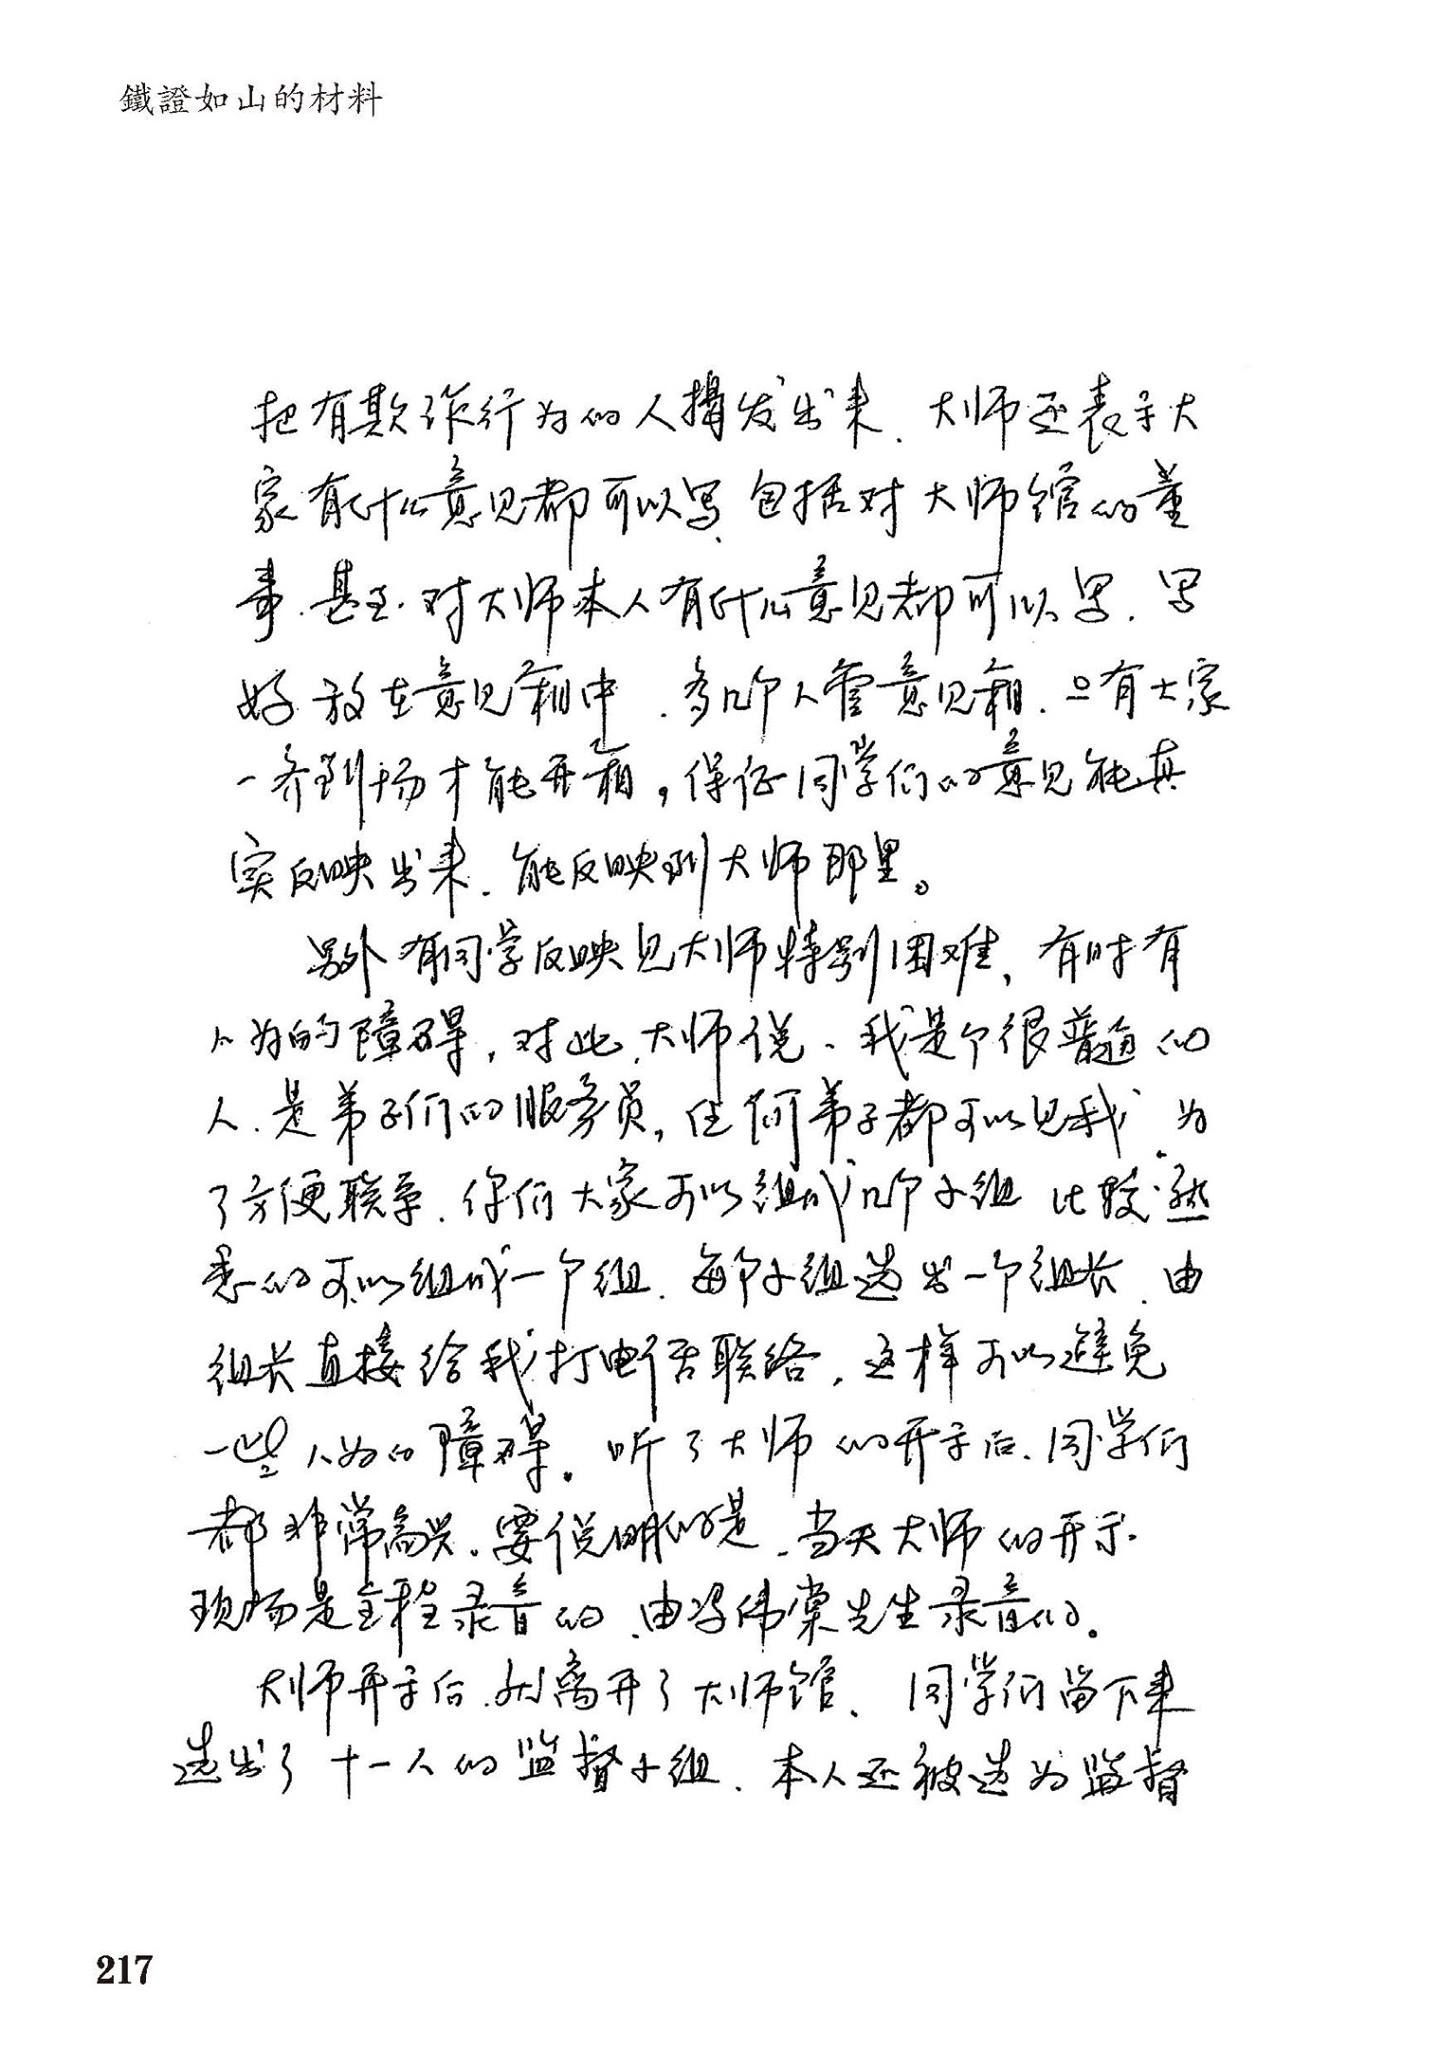 鐵證如山的材料
把有欺诈行为的人揭发出来、大师还表示大
家有什么意见都可以写、包括对大师馆的董
事、甚至对大师本人有什么意见都可以写、写
好放在意见箱中、多几个人管意见箱、只有大家
一齐到场才能开箱，保证同学们的意见能真
实反映出来、能反映到大师那里。
另外有同学反映见大师特别困难，有时有
人为的障碍，对此、大师说、我是个很普通的
人、是弟子们的服务员，任何弟子都可以见我、为
了方便联系、你们大家可以组成几个小组 比较熟
悉的可以组成一个组、每个小组选出一个组长、由
组长直接给我打电话联络，这样可以避免
一些人为的障碍。听了大师的开示后、同学们
都非常高兴。要说明的是、当天大师的开示
现场是全程录音的、由冯伟棠先生录音的。
大师开示后、就离开了大师馆、同学们留下来
选出了十一人的监督小组、本人还被选为监督
217